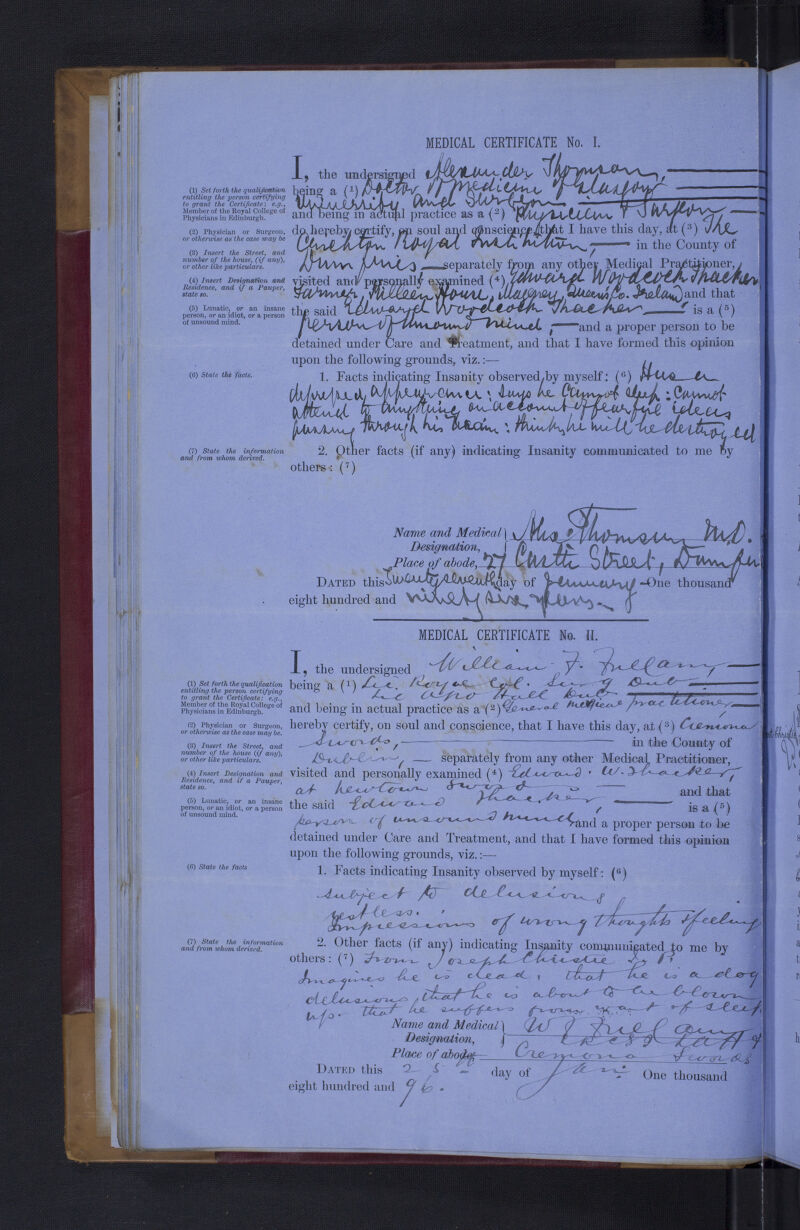 MEDICAL CERTIFICATE No. I.
I, the undersigned Alexander Thomson,
being a (1) Doctor of Medicine of Glasgow
University, and Surgeon
and being in actual practice as a (2) Physician & Surgeon,
do hereby certify, on soul and conscience, that I have this day, at (3) The
Crichton Royal Institution, in the County of
Dumfries, separately from any other Medical Practitioner,
visited and personally examined (4) Edward Woodcock Thacker
Farmer, House, Queen's Co. Ireland and that
the said Edward Woodcock Thacker is a (5)
person of unsound mind, and a proper person to be
detained under Care and Treatment, and that I have formed this opinion
upon the following grounds, viz.:—
1. Facts indicating Insanity observed by myself: (6) Has a
depressed appearance: Says he cannot sleep: cannot
attend to anything on account of fearful ideas
passing through his brain: thinks he will be destroyed
2. Other facts (if any) indicating Insanity communicated to me by
others: (7)
Name and Medical Designation, Alex Thomson M.D.
Place of abode, 27 Castle Street, Dumfries
DATED this Twenty seventh day of January One thousand
eight hundred and ninety six years.
(1) Set forth the qualification
entitling the person certifying
to grant the Certificate: e.g.,
Member of the Royal College of
Physicians in Edinburgh.
(2) Physician or Surgeon,
or otherwise as the case may be
(3) Insert the Street, and
number of the house, (if any),
or other like particulars.
(4) Insert Designation and
Residence, and if a Pauper,
state so.
(5) Lunatic, or an insane
person, or an idiot, or a person
of unsound mind.
(6) State the facts.
(7) State the information
and from whom derived.
MEDICAL CERTIFICATE No. II.
I, the undersigned William F. Fullam
being a (1) Lic. Royal Col. Surg Dub
Lic Apo Hall Dub
and being in actual practice as a (2) General medical practitioner,
hereby certify, on soul and conscience, that I have this day, at (3) Cremona
Swords, in the County of
Dublin, separately from any other Medical Practitioner,
visited and personally examined (4) Edward. W. Thacker,
at Newtown Swords and that
the said Edward Thacker, is a (5)
person of unsound mind, and a proper person to be
detained under Care and Treatment, and that I have formed this opinion
upon the following grounds, viz.:—
1. Facts indicating Insanity observed by myself: (6)
subject to delusions
restless.
Impressions of wrong thoughts & feeling
2. Other facts (if any) indicating Insanity communicated to me by
others: (7) From Joseph Christie
Imagines he is dead, that he is a dog
delusions, that he is about to be blown
up. that he suffers from want of sleep
Name and Medical Designation, W F Fullam
Place of abode, Cremona Swords
DATED this 25 day of Jan: One thousand
eight hundred and 96.
(1) Set forth the qualification
entitling the person certifying
to grant the Certificate: e.g.,
Member of the Royal College of
Physicians in Edinburgh.
(2) Physician or Surgeon,
or otherwise as the case may be.
(3) Insert the Street, and
number of the house (if any),
or other like particulars.
(4) Insert Designation and
Residence, and if a Pauper,
state so.
(5) Lunatic, or an insane
person, or an idiot, or a person
of unsound mind.
(6) State the facts
(7) State the information
and from whom derived.